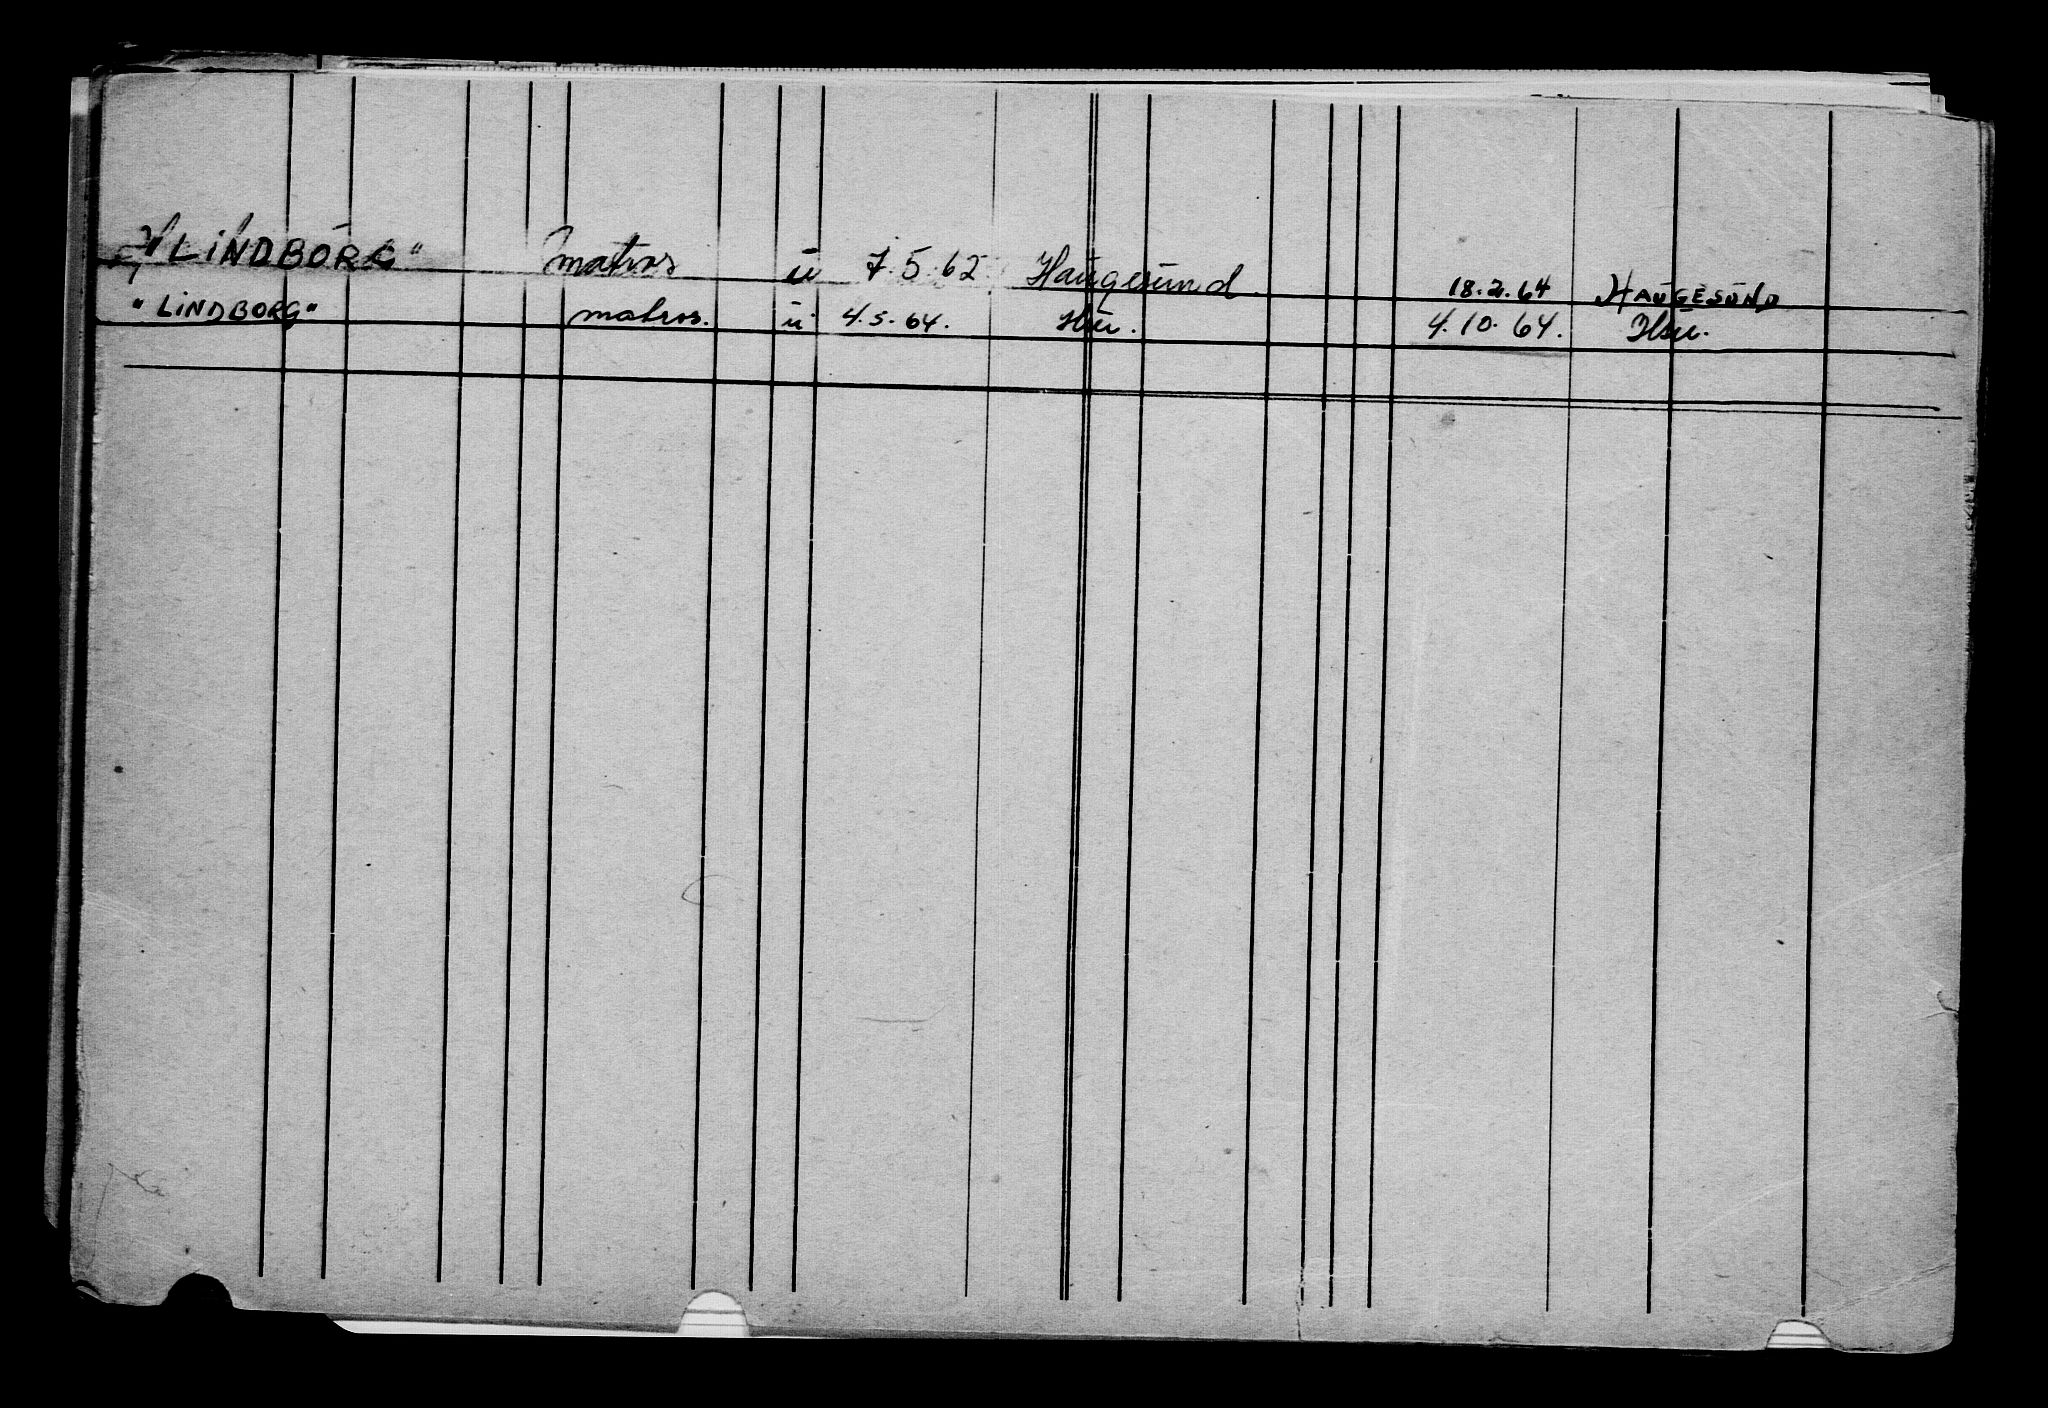 "LINDBORG" matros u 7.5.62 Haugesund 18.2.64 HAUGESUND
"LINDBORG" matros. u 4.5.64. Hsu. 4.10.64. Hsu.